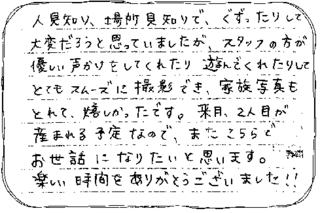 人見知り、場所見知りで、ぐずったりして
大変だろうと思っていましたが、スタッフの方が
優しい声かけをしてくれたり 遊んでくれたりして
とてもスムーズに撮影でき、家族写真も
とれて、嬉しかったです。来月、2人目が
産まれる予定なので、またこちらで
お世話になりたいと思います。
楽しい時間をありがとうございました!!